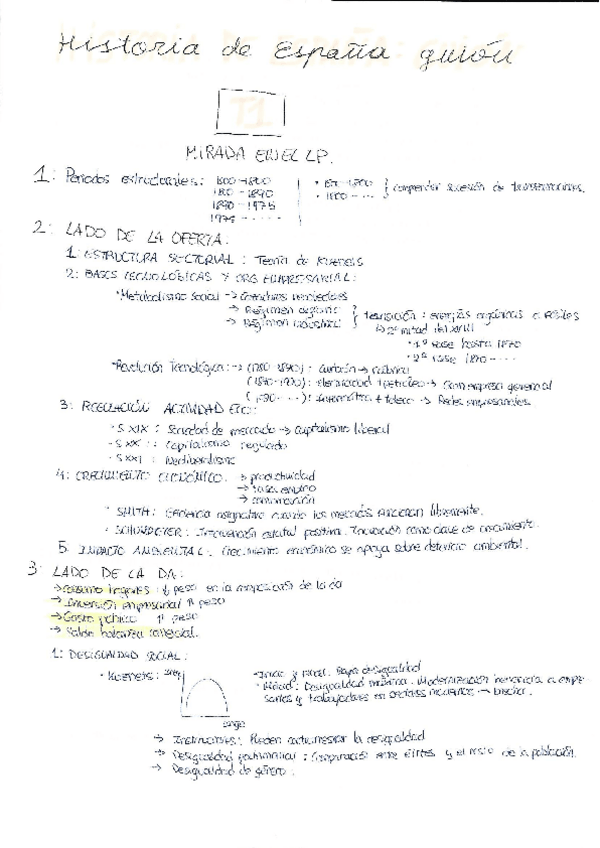 Historia de España guión
T1
MIRADA EN EL LP.
1: Periodos estructurales:
1890 - 1975
1975 - .....
} comprender sucesión de transformaciones.
2: LADO DE LA OFERTA:
1: ESTRUCTURA SECTORIAL: Teoría de Kuznets
2: BASES TECNOLÓGICAS Y ORG EMPRESARIAL:
• Metabolismo Social →
→ Régimen orgánico
→ Régimen industrial
} transición: energías orgánicas a fósiles
↳ 2ª mitad del XVIII
• 1ª fase hasta 1870
• 2ª fase 1870 - ....
• Revolución Tecnológica: → carbón → fábrica
electricidad + petróleo → Gran empresa gerencial
informática + teleco → Redes empresariales.
3: REGULACIÓN ACTIVIDAD ECO:
• S XIX: Sociedad de mercado → Capitalismo liberal
• S XX: Capitalismo regulado
• S XXI: Neoliberalismo
4: CRECIMIENTO ECONÓMICO: → productividad
→ tasa empleo
• SMITH: Eficiencia asignativa cuando los mercados funcionan libremente.
• SCHUMPETER: Intervención estatal positiva. Innovación como clave de crecimiento.
5. IMPACTO AMBIENTAL: Crecimiento económico se apoya sobre deterioro ambiental.
3: LADO DE LA DA:
→ Consumo hogares: ↓ peso en la composición de la da
→ Inversión empresarial ↑ peso
→ Gasto público ↑ peso
→ Saldo balanza comercial.
1: DESIGUALDAD SOCIAL:
• Kuznets:
• Inicio y final: Baja desigualdad
• Mitad: Desigualdad máxima. Modernización beneficia a empre-
sarios y trabajadores en sectores modernos →
→ Instituciones: Pueden contrarrestar la desigualdad
→ Desigualdad patrimonial: Comparación entre élites y el resto de la población.
→ Desigualdad de género.